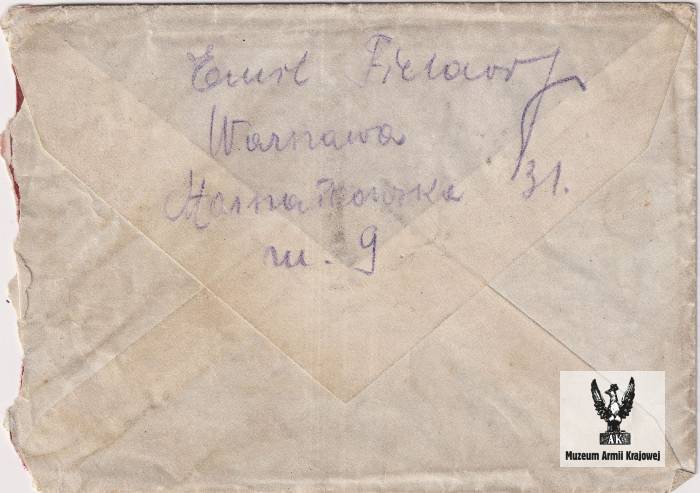 Emil Fieldorf
Warszawa
Marszałkowska 31.
m. 9
AK
Muzeum Armii Krajowej